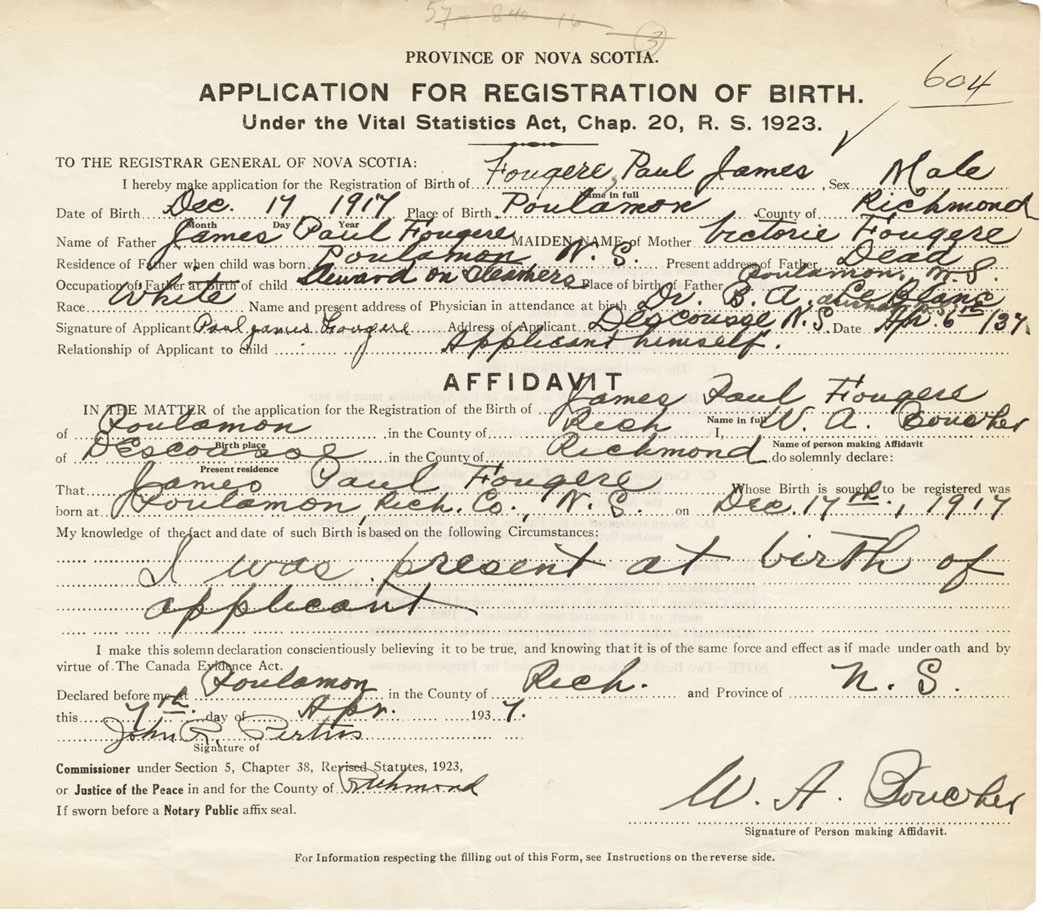 57 840 16
3
PROVINCE OF NOVA SCOTIA.
604
APPLICATION FOR REGISTRATION OF BIRTH.
Under the Vital Statistics Act, Chap. 20, R. S. 1923.
TO THE REGISTRAR GENERAL OF NOVA SCOTIA:
I hereby make application for the Registration of Birth of Fougere, Paul James, Sex Male
Name in full
Date of Birth Dec. 17 1917 Place of Birth Poulamon County of Richmond
Month Day Year
Name of Father James Paul Fougere MAIDEN NAME of Mother Victorie Fougere
Residence of Father when child was born Poulamon N. S. Present address of Father Dead
Occupation of Father at Birth of child Steward on Steamers Place of birth of Father Poulamon, N. S.
Race White Name and present address of Physician in attendance at birth Dr. B. A. Le Blanc
Signature of Applicant Paul James Fougere Address of Applicant Descousse N. S. Date Apr. 6th /37
Relationship of Applicant to child Applicant himself.
AFFIDAVIT
IN THE MATTER of the application for the Registration of the Birth of James Paul Fougere
Name in full
of Poulamon in the County of Rich I, W. A. Boucher
Birth place Name of person making Affidavit
of Descousse in the County of Richmond do solemnly declare:
Present residence
That James Paul Fougere Whose Birth is sought to be registered was
born at Poulamon, Rich. Co., N. S. on Dec. 17th, 1917
My knowledge of the fact and date of such Birth is based on the following Circumstances:
I was present at birth of
applicant
I make this solemn declaration conscientiously believing it to be true, and knowing that it is of the same force and effect as if made under oath and by
virtue of The Canada Evidence Act.
Declared before me at Poulamon in the County of Rich. and Province of N. S.
this 7th day of Apr. 1937.
John R.
Signature of
Commissioner under Section 5, Chapter 38, Revised Statutes, 1923,
or Justice of the Peace in and for the County of Richmond
If sworn before a Notary Public affix seal.
W. A. Boucher
Signature of Person making Affidavit.
For Information respecting the filling out of this Form, see Instructions on the reverse side.